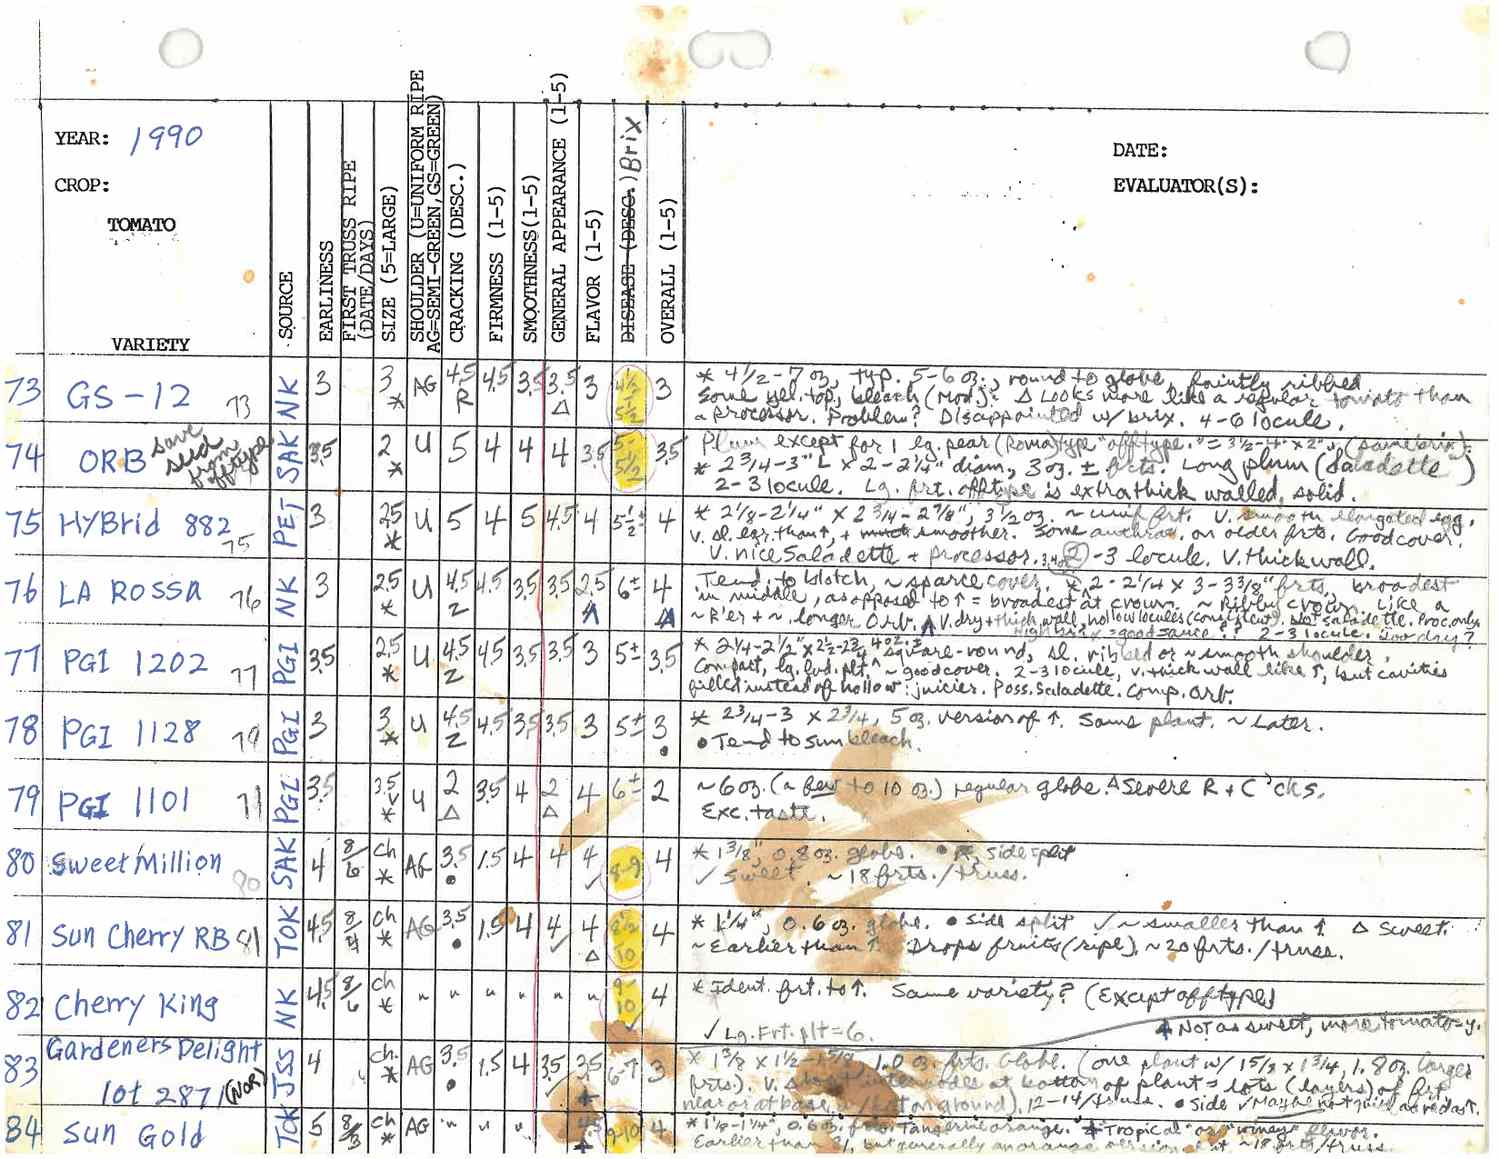 YEAR: 1990
CROP:
TOMATO
VARIETY
SOURCE
EARLINESS
FIRST TRUSS RIPE (DATE/DAYS)
SIZE (5=LARGE)
SHOULDER (U=UNIFORM RIPE AG=SEMI-GREEN, GS=GREEN)
CRACKING (DESC.)
FIRMNESS (1-5)
SMOOTHNESS (1-5)
GENERAL APPEARANCE (1-5)
FLAVOR (1-5)
DISEASE (DESC.) Brix
OVERALL (1-5)
DATE:
EVALUATOR(S):
73 GS-12 73 NK 3 3 * AG 4.5 R 4.5 3.5 3.5 Δ 3 4½ 5½ 3
* 4½-7 oz, typ. 5-6 oz., round to globe, faintly ribbed.
Some yel. top, bleach (Mod). Δ Looks more like a regular tomato than
a processor. Problem? Disappointed w/ brix. 4-6 locule.
74 ORB save seed from offtype SAK 3.5 2 * U 5 4 4 4 3.5 5-5½ 3.5
Plum except for 1 lg. pear (Roma) type "offtype." = 3½-4" x 2", (same brix).
* 2¾-3" L x 2-2¼" diam, 3 oz. ± frts. Long plum (Saladette)
2-3 locule. Lg. frt. offtype is extra thick walled, solid.
75 HYBrid 882 75 PET 3 2.5 * U 5 4 5 4.5 4 5½± 4
* 2⅛-2¼" x 2¾-2⅞", 3½ oz. ~ unif frt. V. smooth elongated egg,
v. sl. lgr than ↑, + smoother. Some anthrac. on older frts. Good cover.
V. nice Saladette + processor. 2-3 locule. V. thick wall.
76 LA ROSSA 76 NK 3 2.5 * U 4.5 Z 4.5 3.5 3.5 2.5 6± 4
Tend to blotch, ~ sparse cover. * 2-2¼ x 3-3⅜" frts, broadest
in middle, as opposed to ↑ = broadest at crown. ~ Ribby crown. Like a
~ R'er + ~ longer Orb. V. dry + thick wall, hollow locules (consistent), not saladette. Proc. only
High brix = good sauce?? 2-3 locule. Too dry?
77 PGI 1202 77 PGI 3.5 2.5 * U 4.5 Z 4.5 3.5 3.5 3 5± 3.5
* 2¼-2½" x 2½-2¾ 4 oz. ± square-round, sl. ribbed or ~ smooth shoulder,
Compact, lg. lvd. plt, ~ good cover. 2-3 locule, v. thick wall like ↑, but cavities
filled instead of hollow: juicier. Poss. Saladette. Comp. Orb.
78 PGI 1128 PGI 3 3 * U 4.5 Z 4.5 3.5 3.5 3 5± 3 •
* 2¾-3 x 2¾, 5 oz. version of ↑. Same plant. ~ Later.
• Tend to sun bleach.
79 PGI 1101 PGI 3.5 3.5 * U 2 Δ 3.5 4 2 Δ 4 6± 2
~ 6 oz. (a few to 10 oz.) regular globe. Δ Severe R + C 'cks.
Exc. taste.
80 Sweet Million 80 SAK 4 8/6 ch * AG 3.5 • 1.5 4 4 4 ✓ 8-9 4
* 1⅜", 0.8 oz. globe. • side split
✓ Sweet. ~ 18 frts./truss.
81 Sun Cherry RB 81 TOK 4.5 8/4 ch * AG 3.5 • 1.5 4 4 ✓ 4 Δ 8½ 10 4
* 1¼", 0.6 oz. globe. • Side split ✓ ~ smaller than ↑ Δ Sweet.
~ Earlier than ↑. Drops fruits (ripe), ~ 20 frts./truss.
82 Cherry King NK 4.5 8/6 ch * " " " " " " 9-10 ✓ 4
* Ident. frt. to ↑. Same variety? (Except offtype)
✓ Lg. Frt. plt = 6. Not as sweet, more tomato-y.
83 Gardeners Delight JSS 4 ch. * AG 3.5 • 1.5 4 3.5 3.5 6-7 3
lot 2871 (NOR)
* 1⅜ x 1½-1⅝, 1.0 oz. frts. Globe. (one plant w/ 1⅝ x 1¾, 1.8 oz. larger
frts.). V. short internodes at bottom of plant = lots (layers) of frt
near or at base, 12-14/truss. • Side ✓ Maybe not quite as red as ↑.
84 Sun Gold TOK 5 8/3 ch * AG " " " 4.5 9-10 4
* 1⅛-1¼", 0.6 oz. frts. Tangerine orange. "Tropical" or "winey" flavor.
Earlier than 81, but generally an orange version of it. ~ 18 frts/truss.